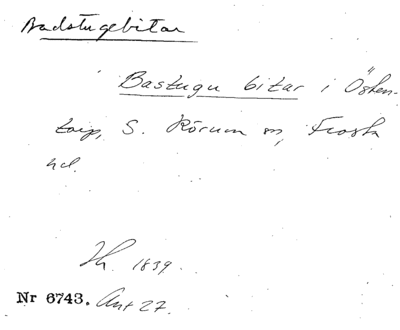 Badstugebitar
Bastugu bitar i Östen-
torp, S. Rörum sn, Frosta
hd.
Jh. 1839.
Nr 6743. Ant 27.